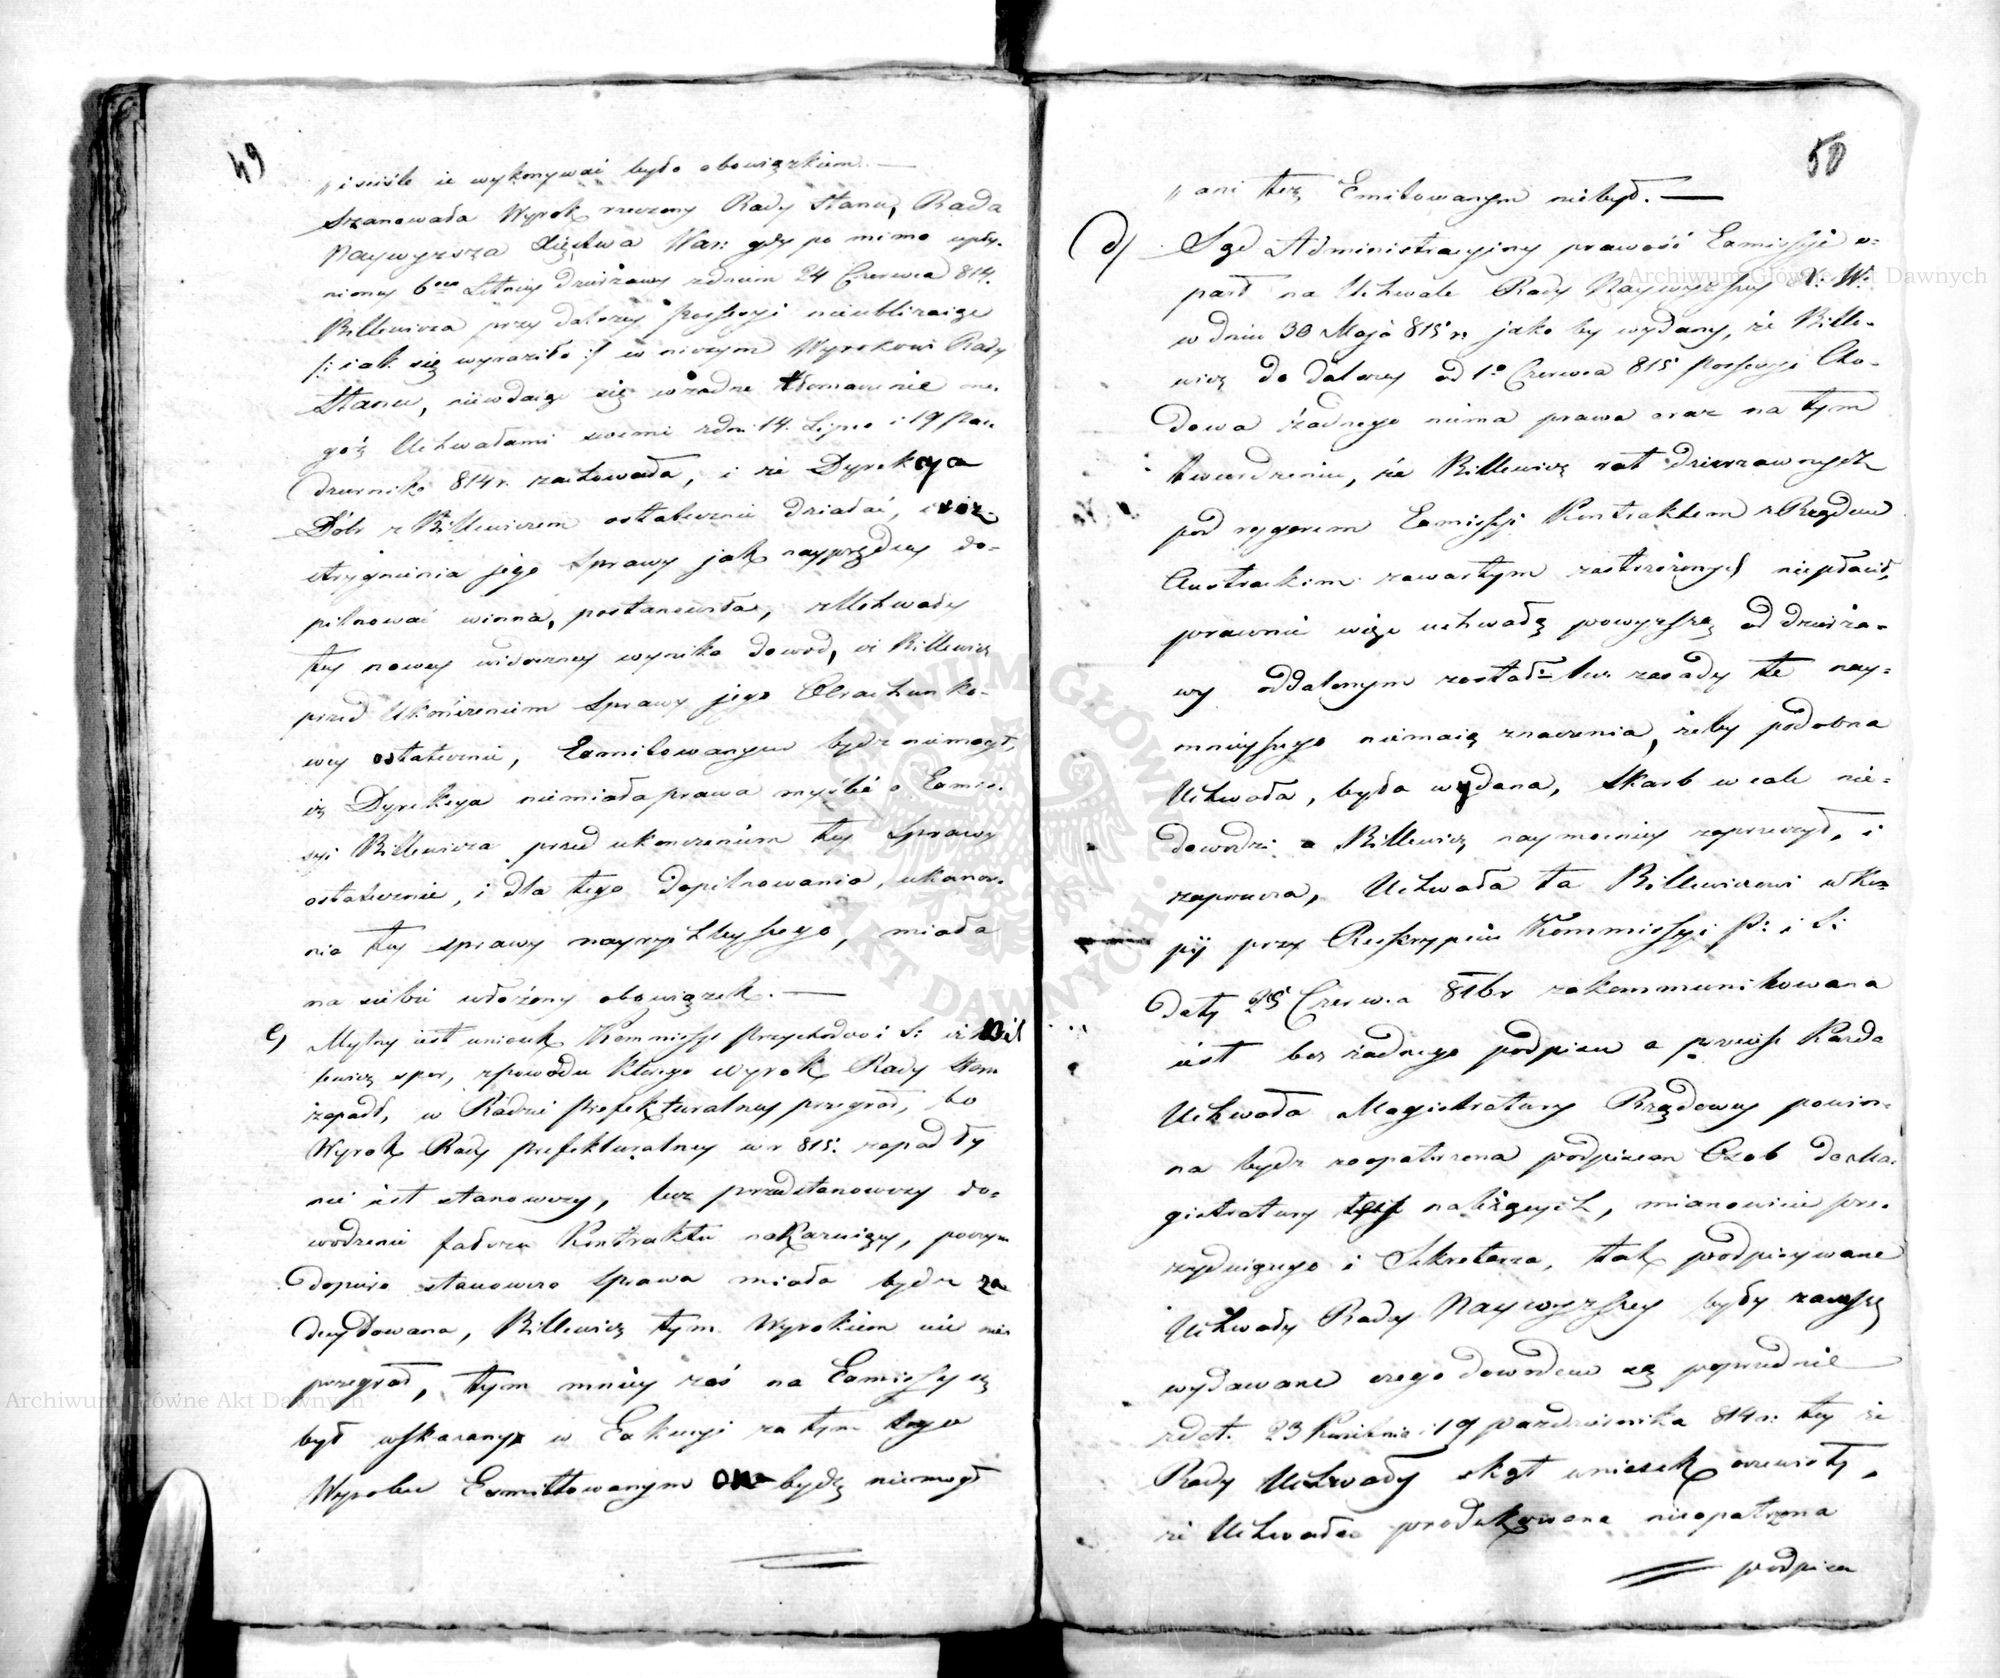 49
„ i ściśle ie wykonywać było obowiązkiem. —
Szanowała Wyrok rzeczony Rady Stanu, Rada
Naywyzsza Xięstwa War: gdy po mimo upły-
nioney 6cio Letniey dzierżawy z dniem 24 Czerwca 814.
Billewicza przy dalszey Possessyi nieubliżaiąc
/: iak się wyraziła :/ w niczym Wyrokowi Rady
Stanu, niewdaiąc się w żadne tłomaczenie one-
goż Uchwałami swemi z dni 14. Lipca i 19 Paz-
dziernika 814 r. zachowała, i że Dyrekcya
Dóbr z Billewiczem ostatecznie działać, i roz-
strzygnienia jego Sprawy jak nayprędzey do-
pilnować winna, postanowiła, z Uchwały
tey nowey widoczney wynika dowod, iż Billewicz
przed Ukończeniem Sprawy jego Obrachunko-
wey ostatecznie, Exmitowanym bydz niemogł,
iż Dyrekcya niemiała prawa myśleć o Exmis-
syi Billewicza przed ukończeniem tey Sprawy
ostatecznie, i dla tego dopilnowania, ukoncze-
nia tey sprawy nayrychleyszego, miała
na siebie włożony obowiązek. —
c) Mylny iest wniosek Kommissyi Przychodow i S: iż Bil
lewicz spor, z powodu ktorego wyrok Rady Stanu
zapadł, w Radzie Prefekturalney przegrał, bo
Wyrok Rady Prefekturalney w r 815. zapadły
nie iest stanowczy, lecz przedstanowczy do-
wodzenie Kontraktu nakazuiący, poczym
dopiero stanowczo Sprawa miała bydz za
decydowana, Billewicz tym Wyrokiem nic nie
przegrał, tym mniey zaś na Exmissyą
był wskazany w Exekucyi za tym tego
Wyroku Exmittowanym bydź niemogł
50
„ ani też Exmitowanym niebył. —
d) Sąd Administracyjny prawość Exmissyi o-
parł na Uchwale Rady Naywyzszey X: W:
w dniu 30 Maja 815 r. jako by wydaney, że Bille-
wicz do dalszey od 1o Czerwca 815 Possessyi Cho-
dowa żadnego niema prawa oraz na tym
twierdzeniu, że Billewicz rat dzierżawnych
pod rygorem Exmissyi Kontraktem z Rządem
Austrackim zawartym zastrzeżonych niepłacił,
prawnie więc uchwałą powyzszą od dzierża-
wy oddalonym został: lecz zasady te nay-
mnieyszego niemaią znaczenia, żeby podobna
Uchwała, była wydana, Skarb wcale nie-
dowodzi a Billewicz naymocniey zaprzeczył, i
zaprzecza, Uchwała ta Billewiczowi w Ko-
pij przy Reskrypcie Kommissyi P: i S:
daty 25 Czerwca 816 r zakommunikowana
iest bez żadnego podpisu a przecież Każda
Uchwała Magistratury Rządowey powin-
na bydz zaopatrzona podpisem Osob do Ma-
gistratury tey należących, mianowicie pre-
zyduiącego i Sekretarza, tak podpisywane
Uchwały Rady Naywyzszey były zawsze
wydawane czego dowodem są poprzednie
z dat. 23 Kwietnia i 19 pazdziernika 814 r: tey że
Rady Uchwały skąd wniosek oczewisty,
że Uchwała produkowana nieopatrzona
podpisem
Archiwum Główne Akt Dawnych
Archiwum Główne Akt Dawnych
ARCHIWUM GŁÓWNE AKT DAWNYCH